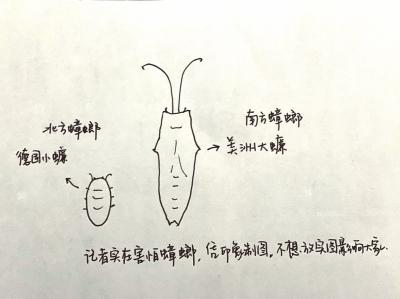 北方蟑螂
德国小蠊
南方蟑螂
美洲大蠊
记者实在害怕蟑螂，信印象制图，不想放实图影响大家